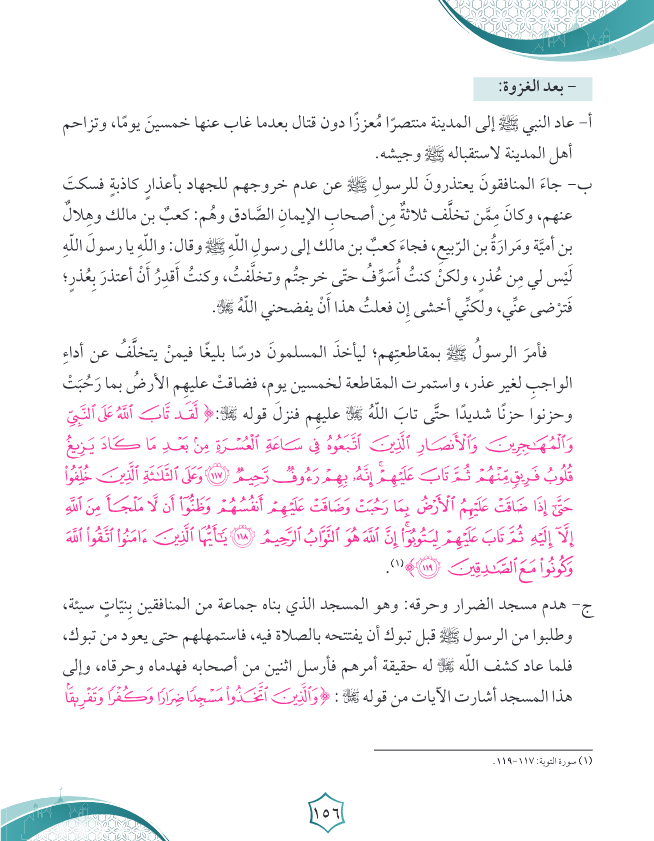 - بعد الغزوة:
أ- عاد النبي ﷺ إلى المدينة منتصرًا مُعززًا دون قتال بعدما غاب عنها خمسينَ يومًا، وتزاحم
أهل المدينة لاستقباله ﷺ وجيشه.
ب- جاءَ المنافقونَ يعتذرونَ للرسولِ ﷺ عن عدم خروجهم للجهاد بأعذارٍ كاذبةٍ فسكتَ
عنهم، وكانَ مِمَّن تخلَّف ثلاثةٌ مِن أصحابِ الإيمانِ الصَّادق وهُم: كعبُ بن مالك وهِلالُ
بن أميَّة ومَرارَةُ بن الرّبيعِ، فجاءَ كعبُ بن مالك إلى رسولِ اللّهِ ﷺ وقال: واللّهِ يا رسولَ اللّهِ
لَيْس لي مِن عُذرٍ، ولكنْ كنتُ أُسَوِّفُ حتّى خرجتُم وتخلَّفتُ، وكنتُ أَقدِرُ أَنْ أعتذرَ بِعُذرٍ؛
فَترْضى عنِّي، ولكنِّي أخشى إن فعلتُ هذا أَنْ يفضحني اللّهُ ﷻ.
فأمرَ الرسولُ ﷺ بمقاطعتِهم؛ ليأخذَ المسلمونَ درسًا بليغًا فيمنْ يتخلَّفُ عن أداءِ
الواجبِ لغير عذر، واستمرت المقاطعة لخمسين يوم، فضاقتْ عليهم الأرضُ بما رَحُبَتْ
وحزنوا حزنًا شديدًا حتَّى تابَ اللّهُ ﷻ عليهم فنزلَ قوله ﷻ: ﴿ لَّقَد تَّابَ ٱللَّهُ عَلَى ٱلنَّبِيِّ
وَٱلْمُهَٰجِرِينَ وَٱلْأَنصَارِ ٱلَّذِينَ ٱتَّبَعُوهُ فِى سَاعَةِ ٱلْعُسْرَةِ مِنۢ بَعْدِ مَا كَادَ يَزِيغُ
قُلُوبُ فَرِيقٍ مِّنْهُمْ ثُمَّ تَابَ عَلَيْهِمْ ۚ إِنَّهُۥ بِهِمْ رَءُوفٌ رَّحِيمٌ ﴿١١٧﴾ وَعَلَى ٱلثَّلَٰثَةِ ٱلَّذِينَ خُلِّفُوا۟
حَتَّىٰٓ إِذَا ضَاقَتْ عَلَيْهِمُ ٱلْأَرْضُ بِمَا رَحُبَتْ وَضَاقَتْ عَلَيْهِمْ أَنفُسُهُمْ وَظَنُّوٓا۟ أَن لَّا مَلْجَأَ مِنَ ٱللَّهِ
إِلَّآ إِلَيْهِ ثُمَّ تَابَ عَلَيْهِمْ لِيَتُوبُوٓا۟ ۚ إِنَّ ٱللَّهَ هُوَ ٱلتَّوَّابُ ٱلرَّحِيمُ ﴿١١٨﴾ يَٰٓأَيُّهَا ٱلَّذِينَ ءَامَنُوا۟ ٱتَّقُوا۟ ٱللَّهَ
وَكُونُوا۟ مَعَ ٱلصَّٰدِقِينَ ﴿١١٩﴾ ﴾(١).
ج- هدم مسجد الضرار وحرقه: وهو المسجد الذي بناه جماعة من المنافقين بِنيّاتٍ سيئة،
وطلبوا من الرسول ﷺ قبل تبوك أن يفتتحه بالصلاة فيه، فاستمهلهم حتى يعود من تبوك،
فلما عاد كشف اللّه ﷻ له حقيقة أمرهم فأرسل اثنين من أصحابه فهدماه وحرقاه، وإلى
هذا المسجد أشارت الآيات من قوله ﷻ : ﴿ وَٱلَّذِينَ ٱتَّخَذُوا۟ مَسْجِدًا ضِرَارًا وَكُفْرًا وَتَفْرِيقًۢا
(١) سورة التوبة: ١١٧-١١٩.
١٥٦